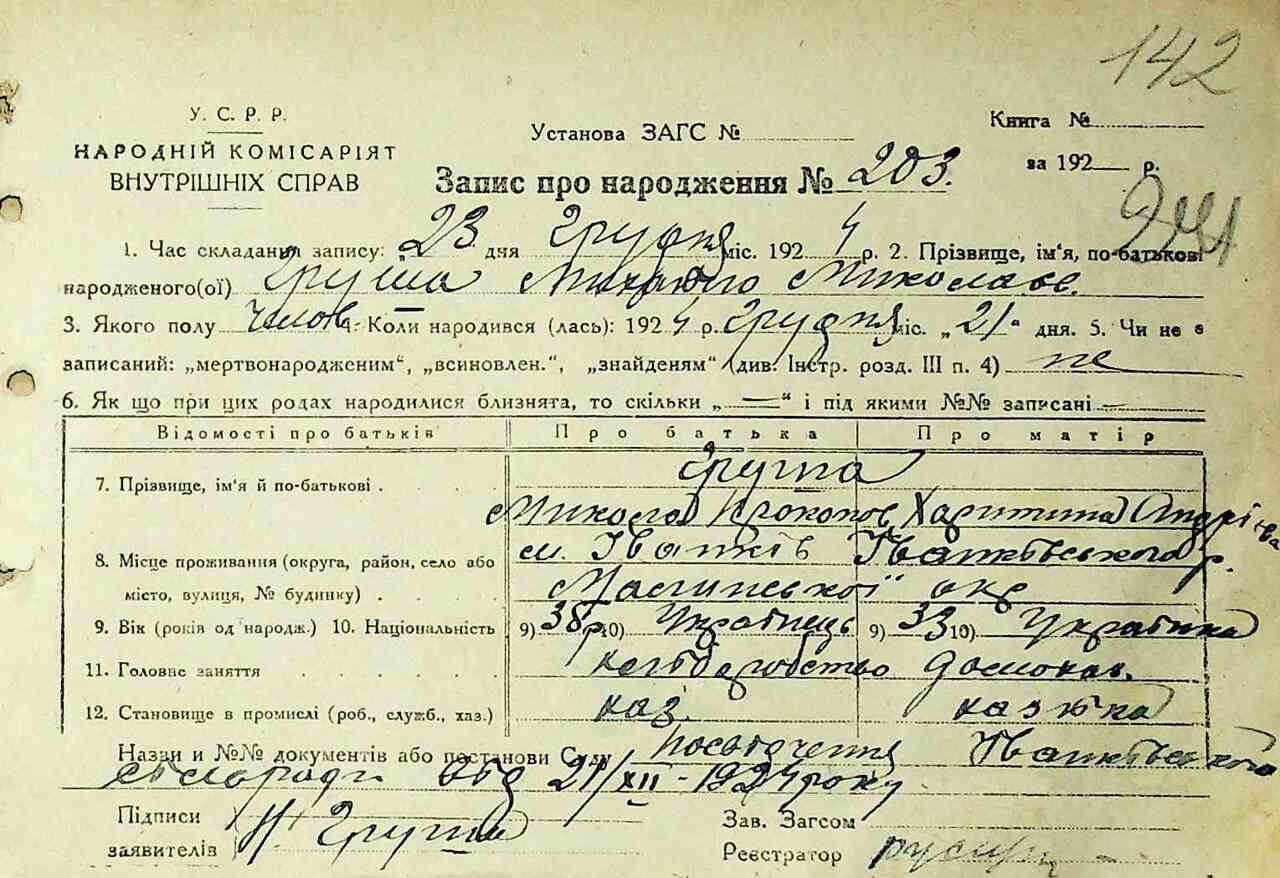 142
У. С. Р. Р.
НАРОДНІЙ КОМІСАРІЯТ
ВНУТРІШНІХ СПРАВ
Установа ЗАГС №
Книга №
за 192 р.
Запис про народження № 203.
1. Час складання запису: „23 дня Грудня міс. 1924 р. 2. Прізвище, ім'я, по-батькові
народженого(ої) Груша Михайло Миколаєв.
3. Якого полу Чолов. 4. Коли народився (лась): 1924 р. Грудня міс. „21“ дня. 5. Чи не є
записаний: „мертвонародженим“, „всиновлен.“, „знайденям“ (див. Інстр. розд. III п. 4) не
6. Як що при цих родах народилися близнята, то скільки „—“ і під якими №№ записані —
Відомості про батьків Про батька Про матір
7. Прізвище, ім'я й по-батькові . . . . Груша
Микола Прокопов Харитина Андрієва
8. Місце проживання (округа, район, село або м. Іванків Іванківського р.
місто, вулиця, № будинку) . . . . Малинської окр
9. Вік (років од народж.) 10. Національність 9) 38 р. 10) Українець 9) 33 10) Українка
11. Головне заняття . . . . . хліборобство домохаз.
12. Становище в промислі (роб., служб., хаз.) хаз. хазяйка
Назви и №№ документів або постанови Суду посвідчення Іванківського
сельради від 21/XII - 1924 року
Підписи
заявителів
Груша
Зав. Загсом
Реєстратор